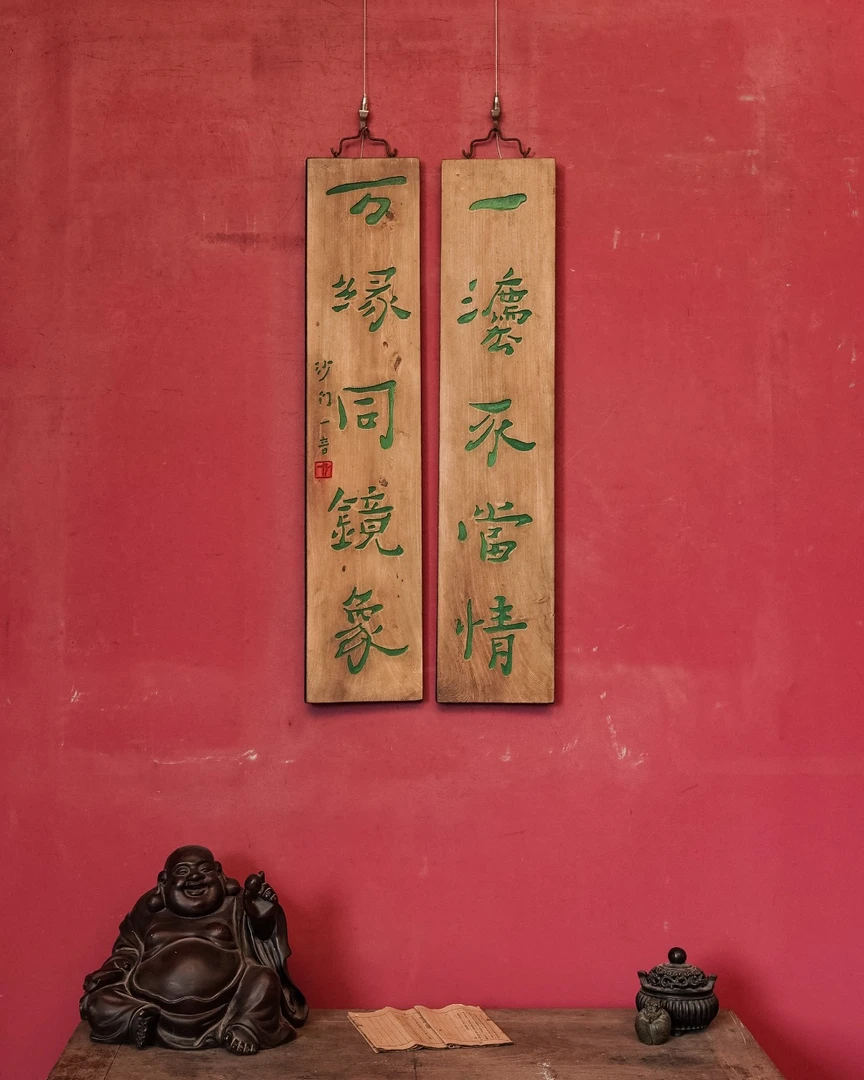 一灋不當情
万緣同鏡象
沙门一音